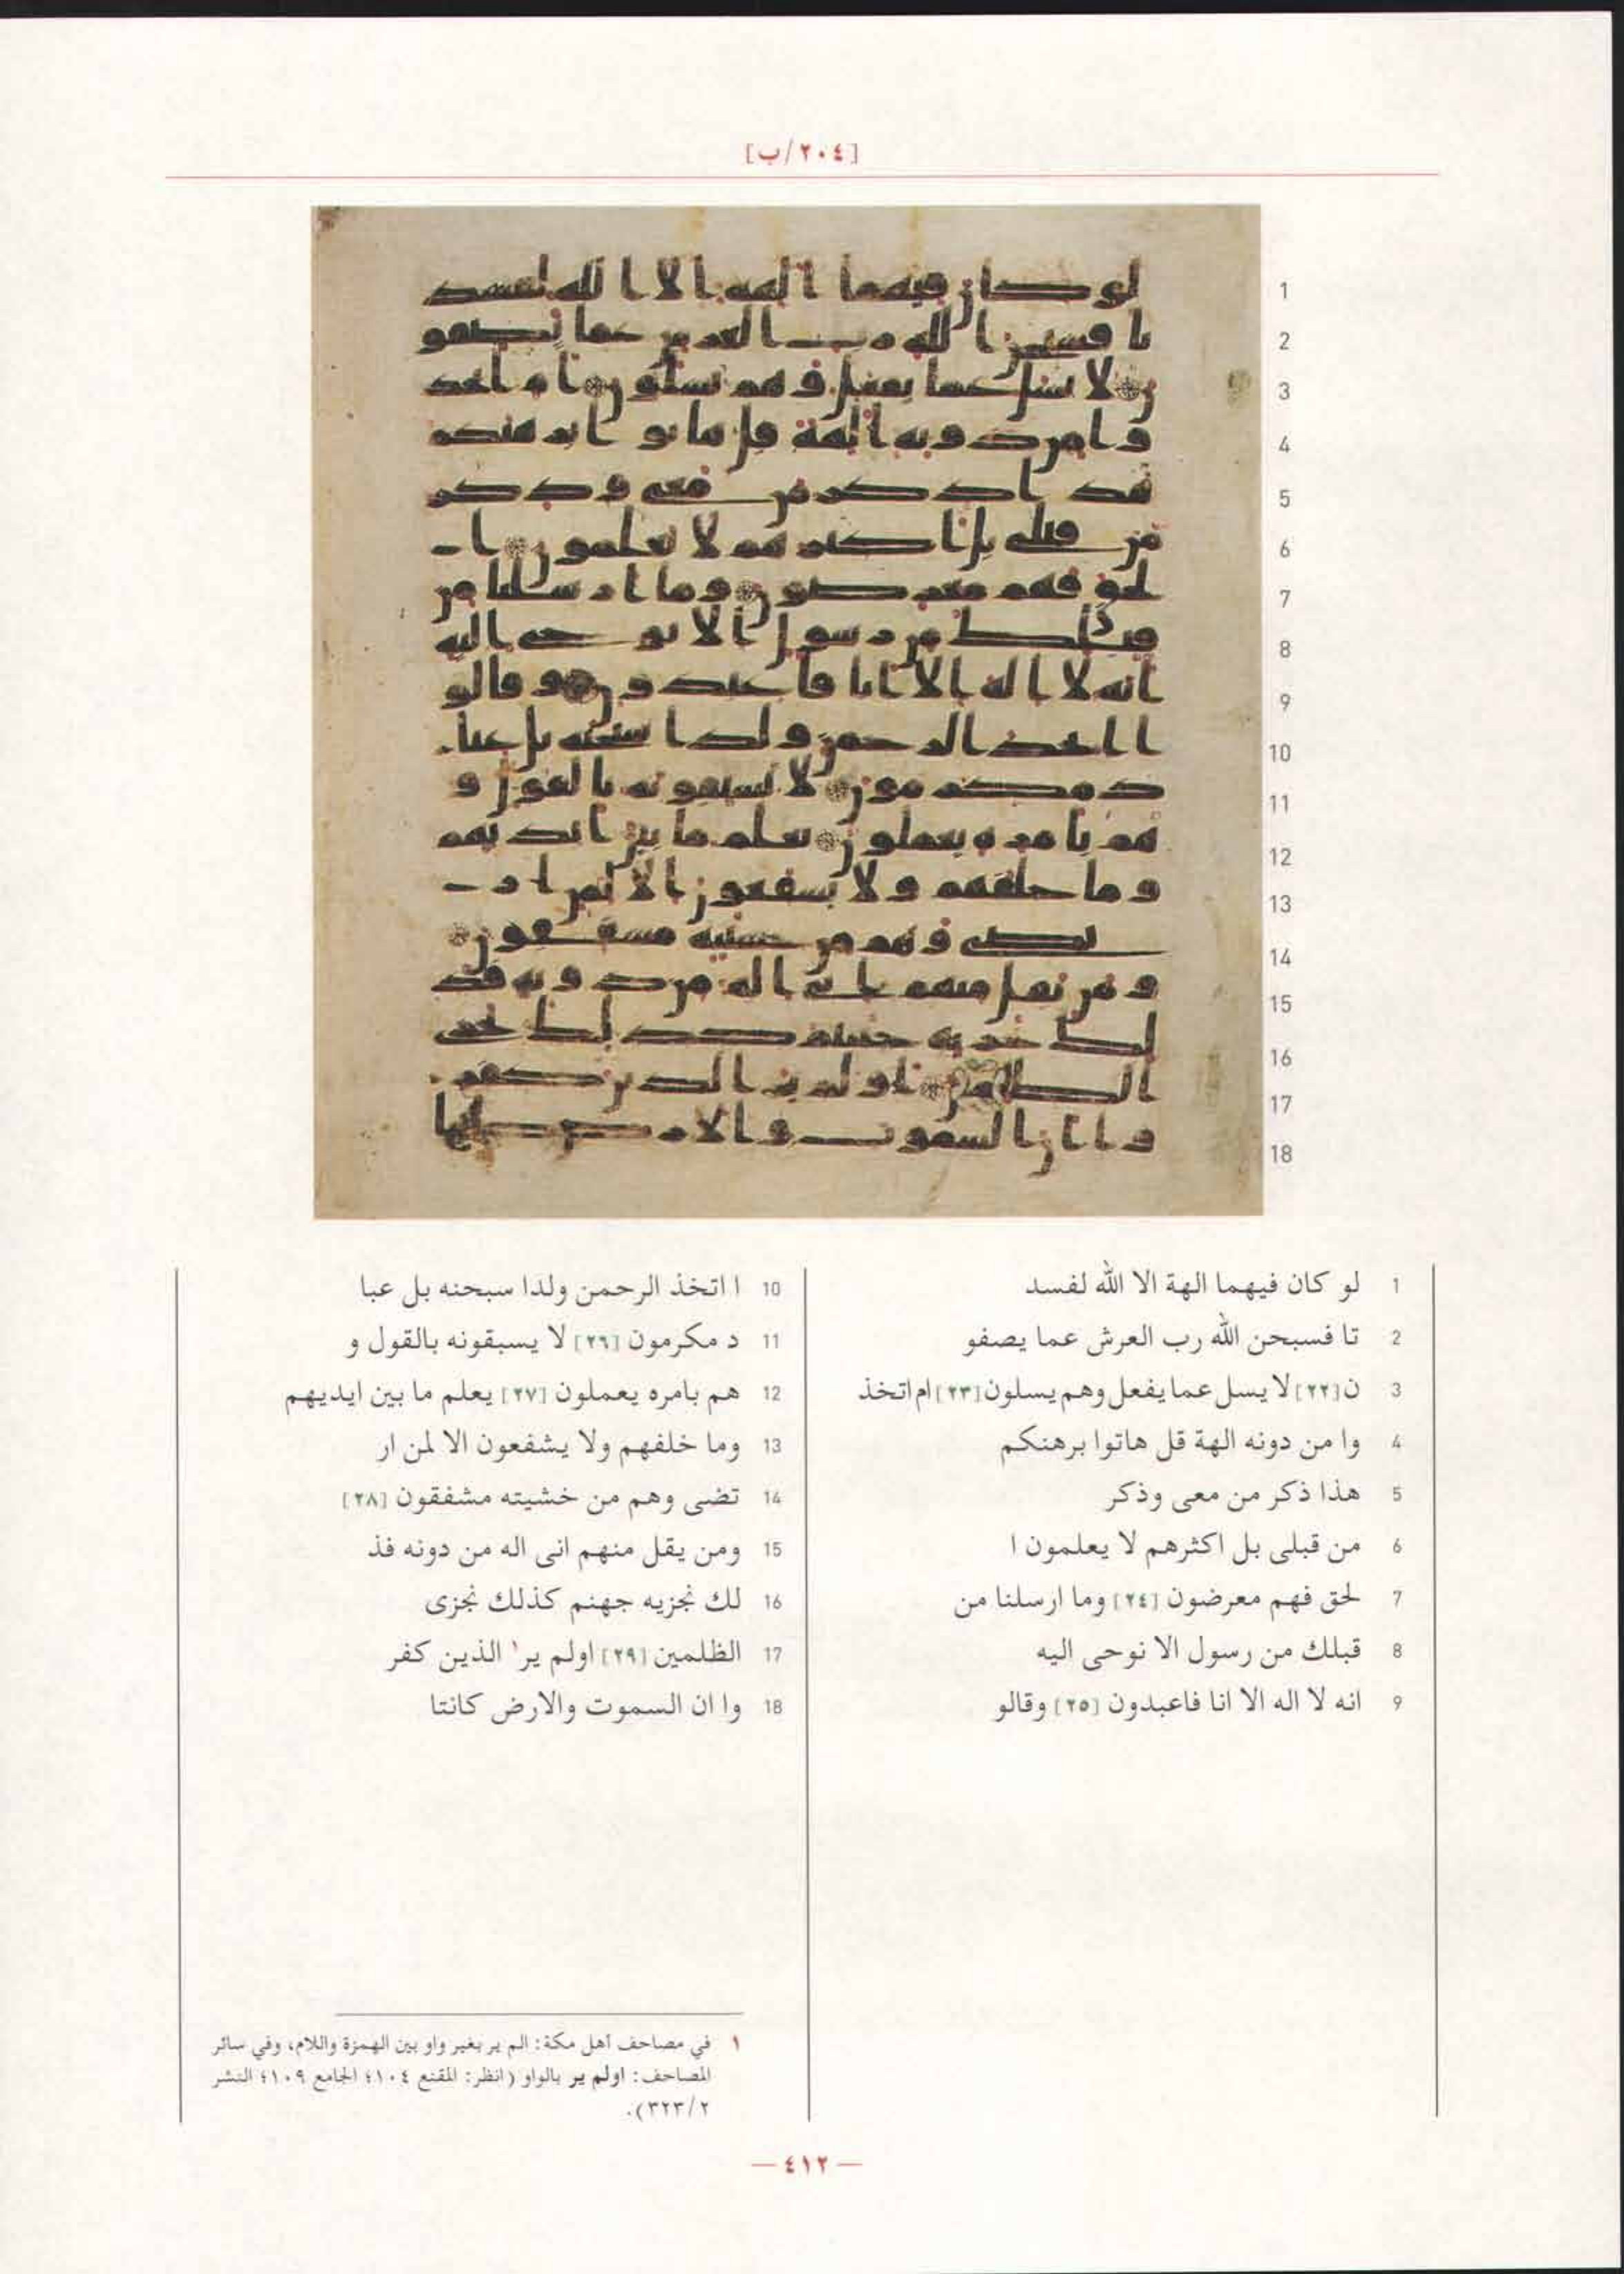 [٢٠٤/ب]
1 لو كان فيهما الهة الا الله لفسد
2 تا فسبحن الله رب العرش عما يصفو
3 ن [٢٢] لا يسل عما يفعل وهم يسلون [٢٣] ام اتخذ
4 وا من دونه الهة قل هاتوا برهنكم
5 هذا ذكر من معى وذكر
6 من قبلى بل اكثرهم لا يعلمون ا
7 لحق فهم معرضون [٢٤] وما ارسلنا من
8 قبلك من رسول الا نوحى اليه
9 انه لا اله الا انا فاعبدون [٢٥] وقالو
10 ا اتخذ الرحمن ولدا سبحنه بل عبا
11 د مكرمون [٢٦] لا يسبقونه بالقول و
12 هم بامره يعملون [٢٧] يعلم ما بين ايديهم
13 وما خلفهم ولا يشفعون الا لمن ار
14 تضى وهم من خشيته مشفقون [٢٨]
15 ومن يقل منهم انى اله من دونه فذ
16 لك نجزيه جهنم كذلك نجزى
17 الظلمين [٢٩] اولم ير١ الذين كفر
18 وا ان السموت والارض كانتا
١ في مصاحف أهل مكة: الم ير بغير واو بين الهمزة واللام، وفي سائر
المصاحف: اولم ير بالواو (انظر: المقنع ١٠٤؛ الجامع ١٠٩؛ النشر
٣٢٣/٢).
— ٤١٢ —